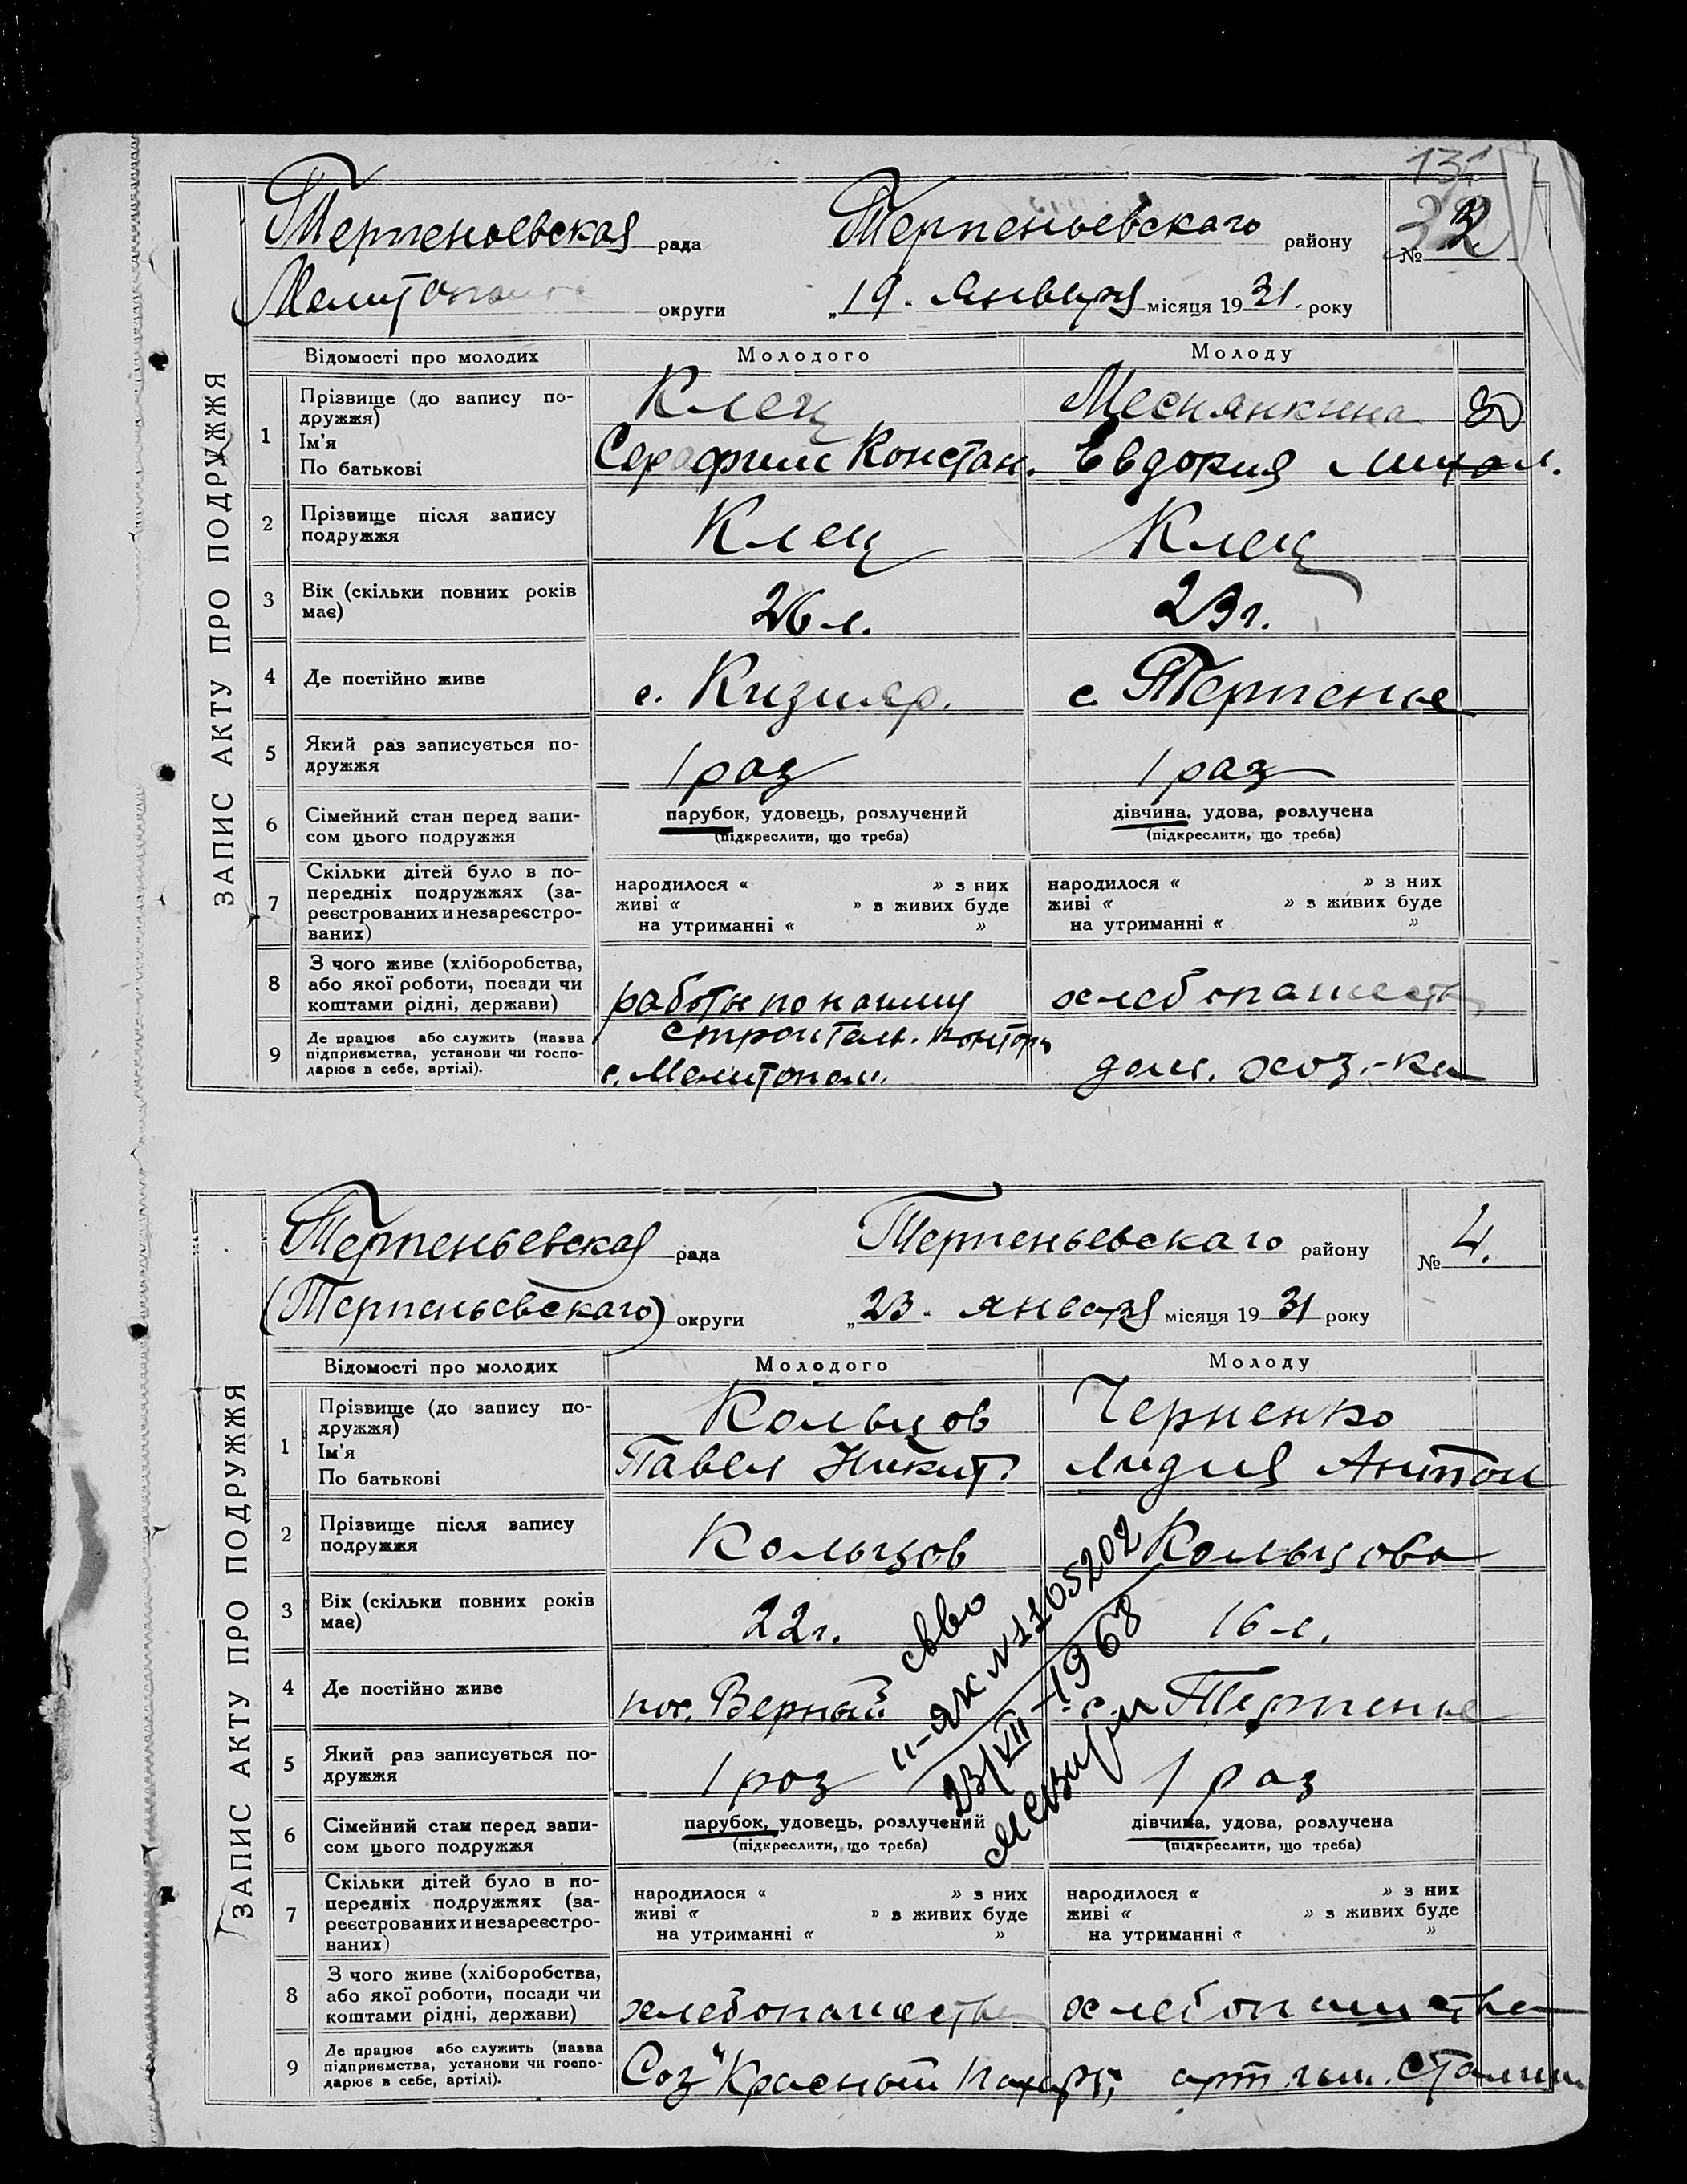 131
Терпеньевская рада Терпеньевскаго району № 3
Мелитополь округи „19“ января місяця 1931 року
ЗАПИС АКТУ ПРО ПОДРУЖЖЯ
Відомості про молодих Молодого Молоду
1 Прізвище (до запису по-
дружжя) Клец
Ім'я
По батькові Серафим Констан. Евдокия Михал.
2 Прізвище після запису
подружжя Клец Клец
3 Вік (скільки повних років
має) 26 л. 23 г.
4 Де постійно живе с. Кизияр. с. Терпенье
5 Який раз записується по-
дружжя 1 раз 1 раз
6 Сімейний стан перед запи-
сом цього подружжя парубок, удовець, розлучений дівчина, удова, розлучена
(підкреслити, що треба) (підкреслити, що треба)
7 Скільки дітей було в по-
передніх подружжях (за-
реєстрованих и незареєстро-
ваних)
народилося « » з них народилося « » з них
живі « » з живих буде живі « » з живих буде
на утриманні « » на утриманні « »
8 З чого живе (хліборобства,
або якої роботи, посади чи
коштами рідні, держави) работы по найму хлебопашеств
9 Де працює або служить (назва
підприємства, установи чи госпо-
дарює в себе, артілі). строитель. контор
г. Мелитополь. дом. хоз.-ка
Терпеньевская рада Терпеньевскаго району № 4.
(Терпеньевскаго) округи „23“ января місяця 1931 року
ЗАПИС АКТУ ПРО ПОДРУЖЖЯ
Відомості про молодих Молодого Молоду
1 Прізвище (до запису по-
дружжя) Кольцов Черненко
Ім'я
По батькові Павел Никит. Лидия Антон
2 Прізвище після запису
подружжя Кольцов Кольцова
3 Вік (скільки повних років
має) 22 г. 16 л.
4 Де постійно живе пос. Верный с. Терпенье
5 Який раз записується по-
дружжя 1 раз 1 раз
6 Сімейний стан перед запи-
сом цього подружжя парубок, удовець, розлучений дівчина, удова, розлучена
(підкреслити, що треба) (підкреслити, що треба)
7 Скільки дітей було в по-
передніх подружжях (за-
реєстрованих и незареєстро-
ваних)
народилося « » з них народилося « » з них
живі « » з живих буде живі « » з живих буде
на утриманні « » на утриманні « »
8 З чого живе (хліборобства,
або якої роботи, посади чи
коштами рідні, держави) хлебопашество хлебопашество
9 Де працює або служить (назва
підприємства, установи чи госпо-
дарює в себе, артілі). Соз "Красный пахарь" арт. им. Сталин
свво
II-ЯК № 1105202
23/VII-1968